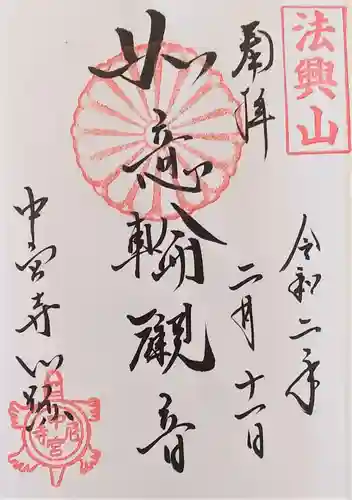 法興山
奉拝
令和二年
二月十一日
如意輪観音
中宮寺門跡
中宮寺